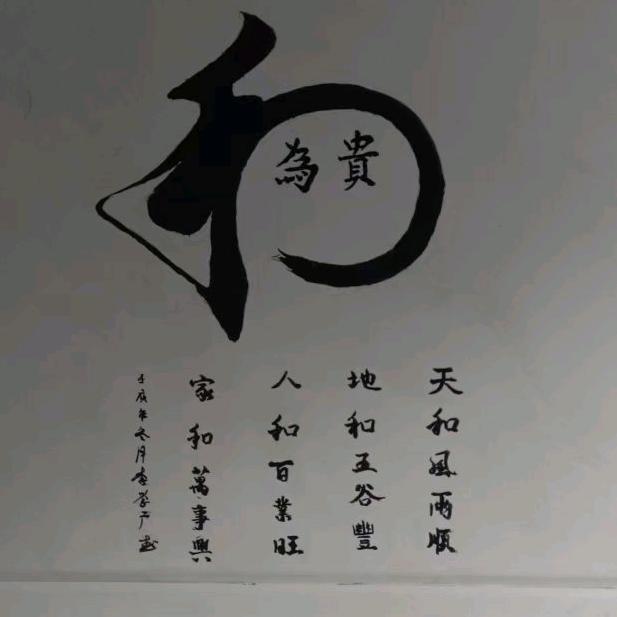 和
為貴
天和風雨順
地和五谷豐
人和百業旺
家和萬事興
年冬月李学广